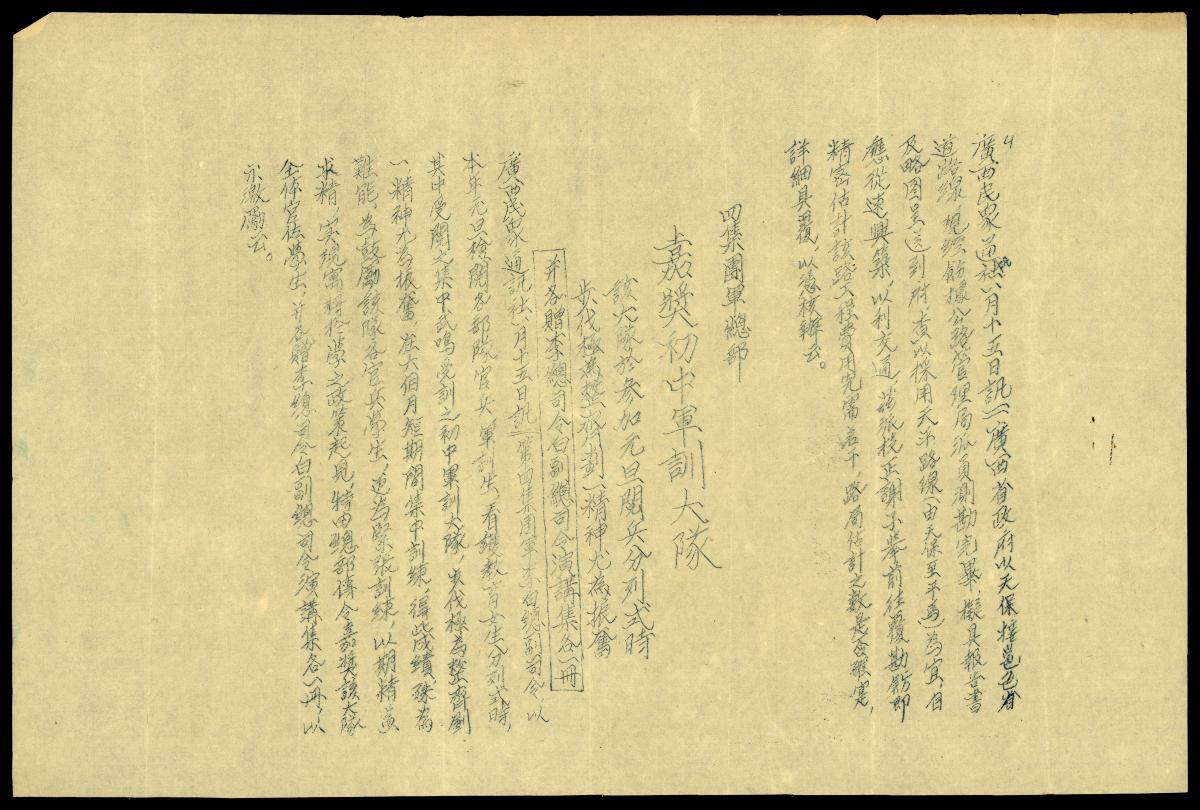 4
廣西民眾通訊社八月十五日訊二廣西省政府以天保接邕色省
道路線，現經飭據公路管理局派員測勘完畢，擬具報告書
及略图呈送到府，查以採用天平路線（由天保至平馬）為宜，自
應從速興築，以利交通，茲派技正謝子舉前往覆勘飭即
精密估計該路工程費用究需若干，路局估計之數是否确实，
詳細具覆，以憑核辦云。
四集團軍總部
嘉獎初中軍訓大隊
該大隊於參加元旦閱兵分列式時
步伐極為整齊劃一精神尤為振奮
并各贈李總司令白副總司令演講集各一冊
廣西民眾通訊社八月十五日訊二第四集團軍李白總副司令，以
本年元旦檢閱各部隊官兵、軍訓生、看護教育女生分列式時，
其中受閱之集中武鳴受訓之初中軍訓大隊，步伐極為整齊劃
一精神尤為振奮，在六個月短期間集中訓練，得此成績，殊為
難能，為鼓勵該隊各官兵學生，更為緊張訓練，以期精益
求精，实現寓将於學之政策起見，特由總部傳令嘉獎該大隊
全体官佐學生，并各贈李總司令白副總司令演講集各一冊，以
示激勵云。